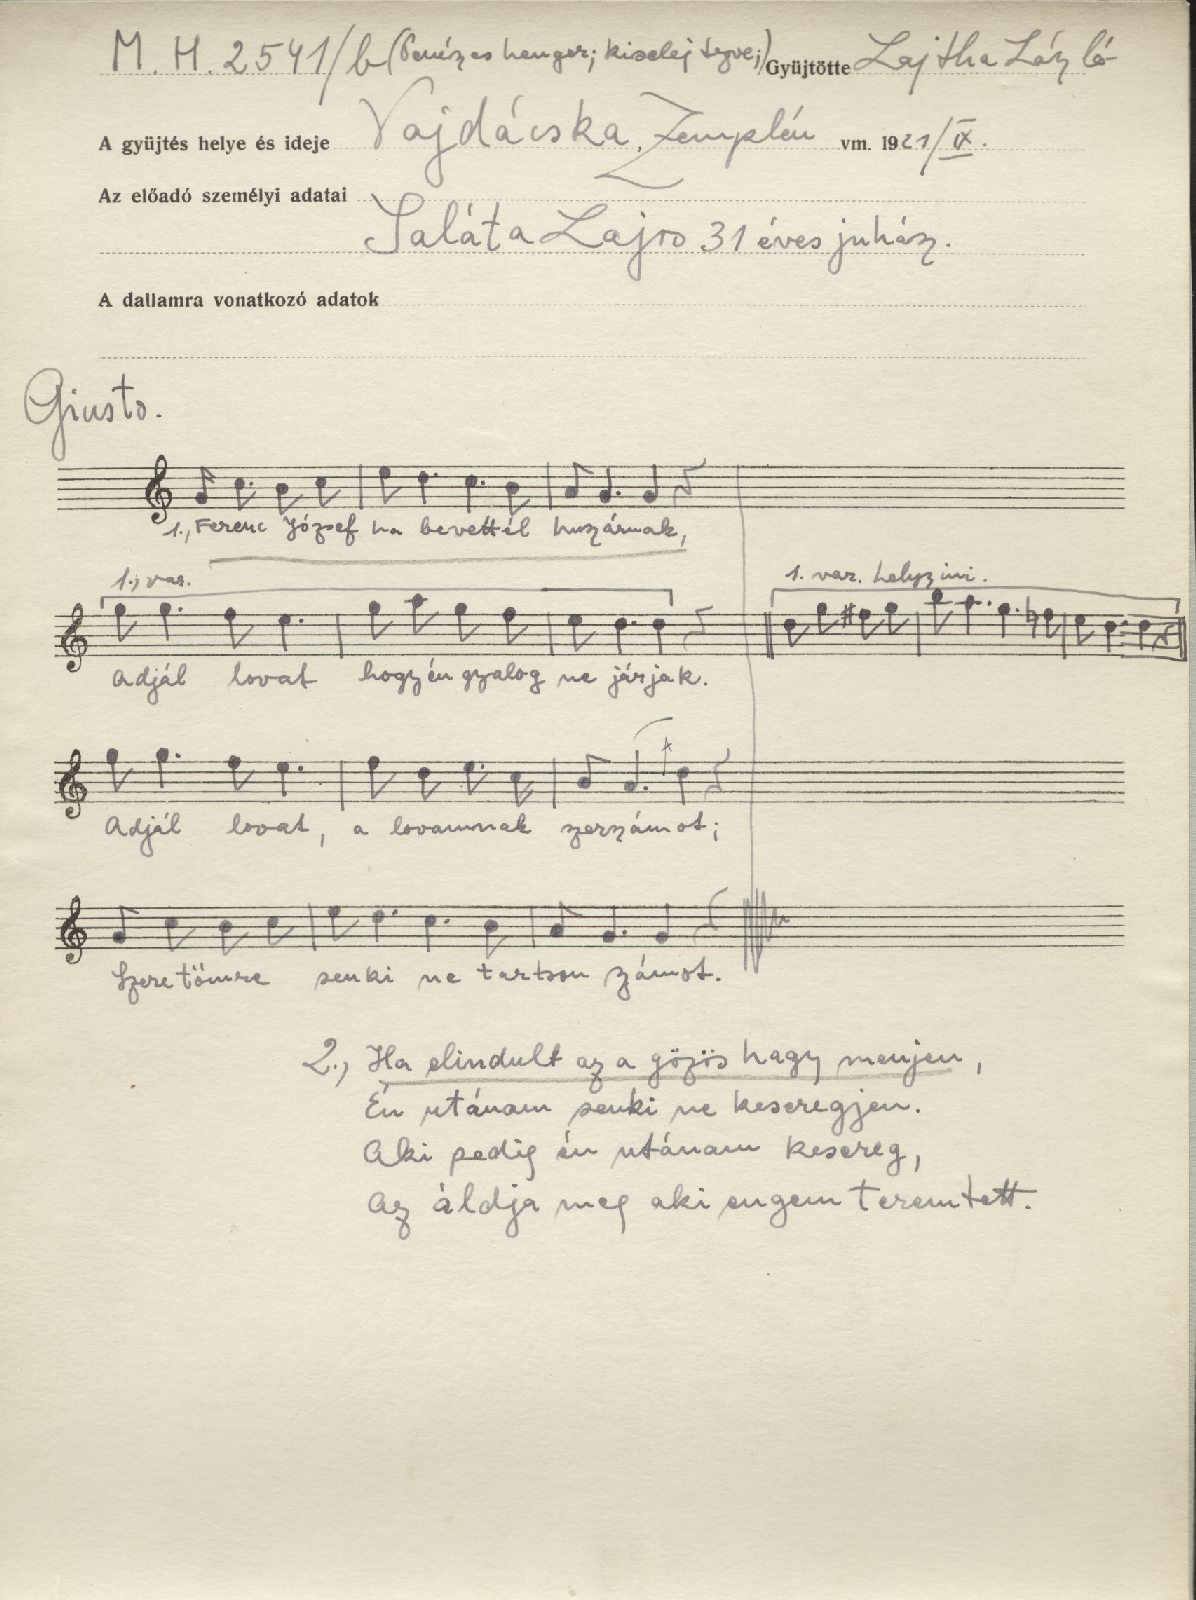 M. H. 2541/b (Penészes henger; kiselejtezve;) Gyüjtötte Lajtha László
A gyüjtés helye és ideje Vajdácska, Zemplén vm. 1921/IX.
Az előadó személyi adatai
Saláta Lajos 31 éves juhász.
A dallamra vonatkozó adatok
Giusto.
1., Ferenc József ha bevettél huszárnak,
1., var. 1. var. helyszini.
Adjál lovat hogy én gyalog ne járjak.
Adjál lovat, a lovamnak szerszámot;
Szeretömre senki ne tartson számot.
2., Ha elindult az a gözös hagy menjen,
Én utánam senki ne keseregjen.
Aki pedig én utánam kesereg,
Az áldja meg aki engem teremtett.